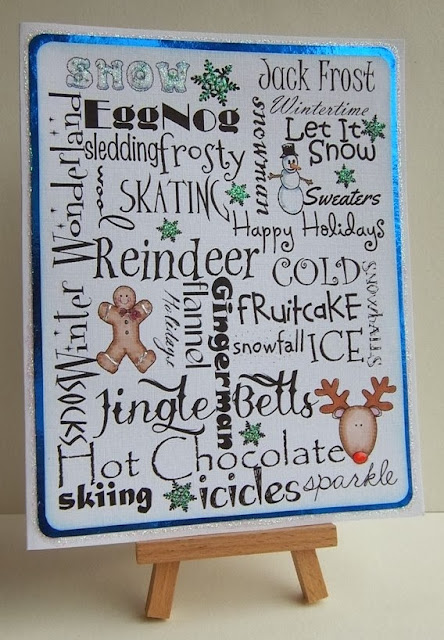 SNOW
Jack Frost
Wintertime
EggNog
snowman
Let It
Snow
sledding
frosty
wool
SKATING
Sweaters
Happy Holidays
Winter Wonderland
Reindeer
COLD
SNOWBALLS
Holidays
flannel
Gingerman
fRuitcaKe
snowfall
ICE
SOCKS
Jingle Bells
Hot Chocolate
skiing
icicles
sparkle